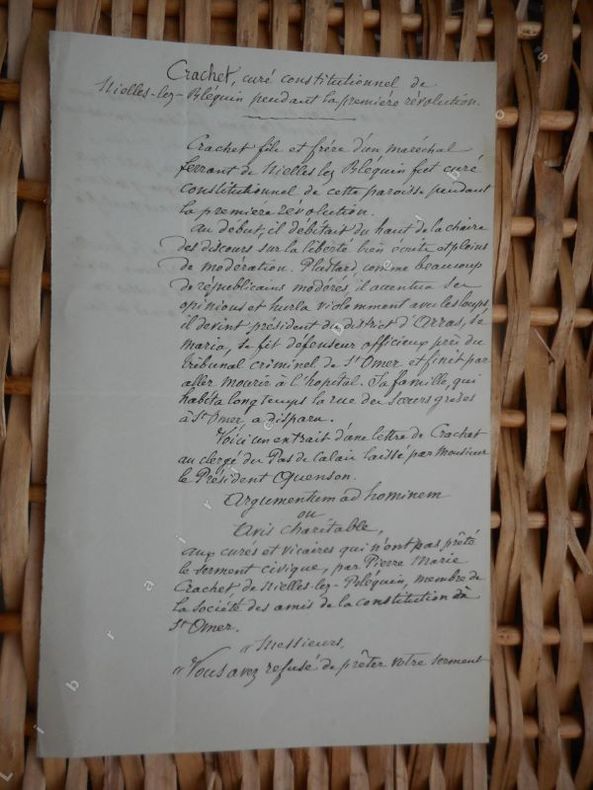 Crachet, curé constitutionnel de
Nielles-lez-Bléquin pendant la première révolution.
Crachet fils et frère d'un maréchal
ferrant de Nielles lez Bléquin fut curé
constitutionnel de cette paroisse pendant
la premiere révolution.
au début, il débitait du haut de la chaire
des discours sur la liberté bien écrits et pleins
de modération. Plus tard, comme beaucoup
de républicains modérés, il accentua ses
opinions et hurla violemment avec les loups
il devint président du district d'Arras, se
maria, se fit défenseur officieux près du
tribunal criminel de St Omer et finit par
aller mourir à l'hopital. Sa famille, qui
habita longtemps la rue des Sœurs grises
à St Omer, a disparu.
Voici un extrait d'une lettre de Crachet
au clergé du Pas de Calais laissé par Monsieur
le Président Quenson.
Argumentum ad hominem
ou
Avis charitable,
aux curés et vicaires qui n'ont pas prêté
le serment civique, par Pierre Marie
Crachet de Nielles-lez-Bléquin, membre de
la société des amis de la constitution de
St Omer.
" Messieurs,
" Vous avez refusé de prêter votre serment